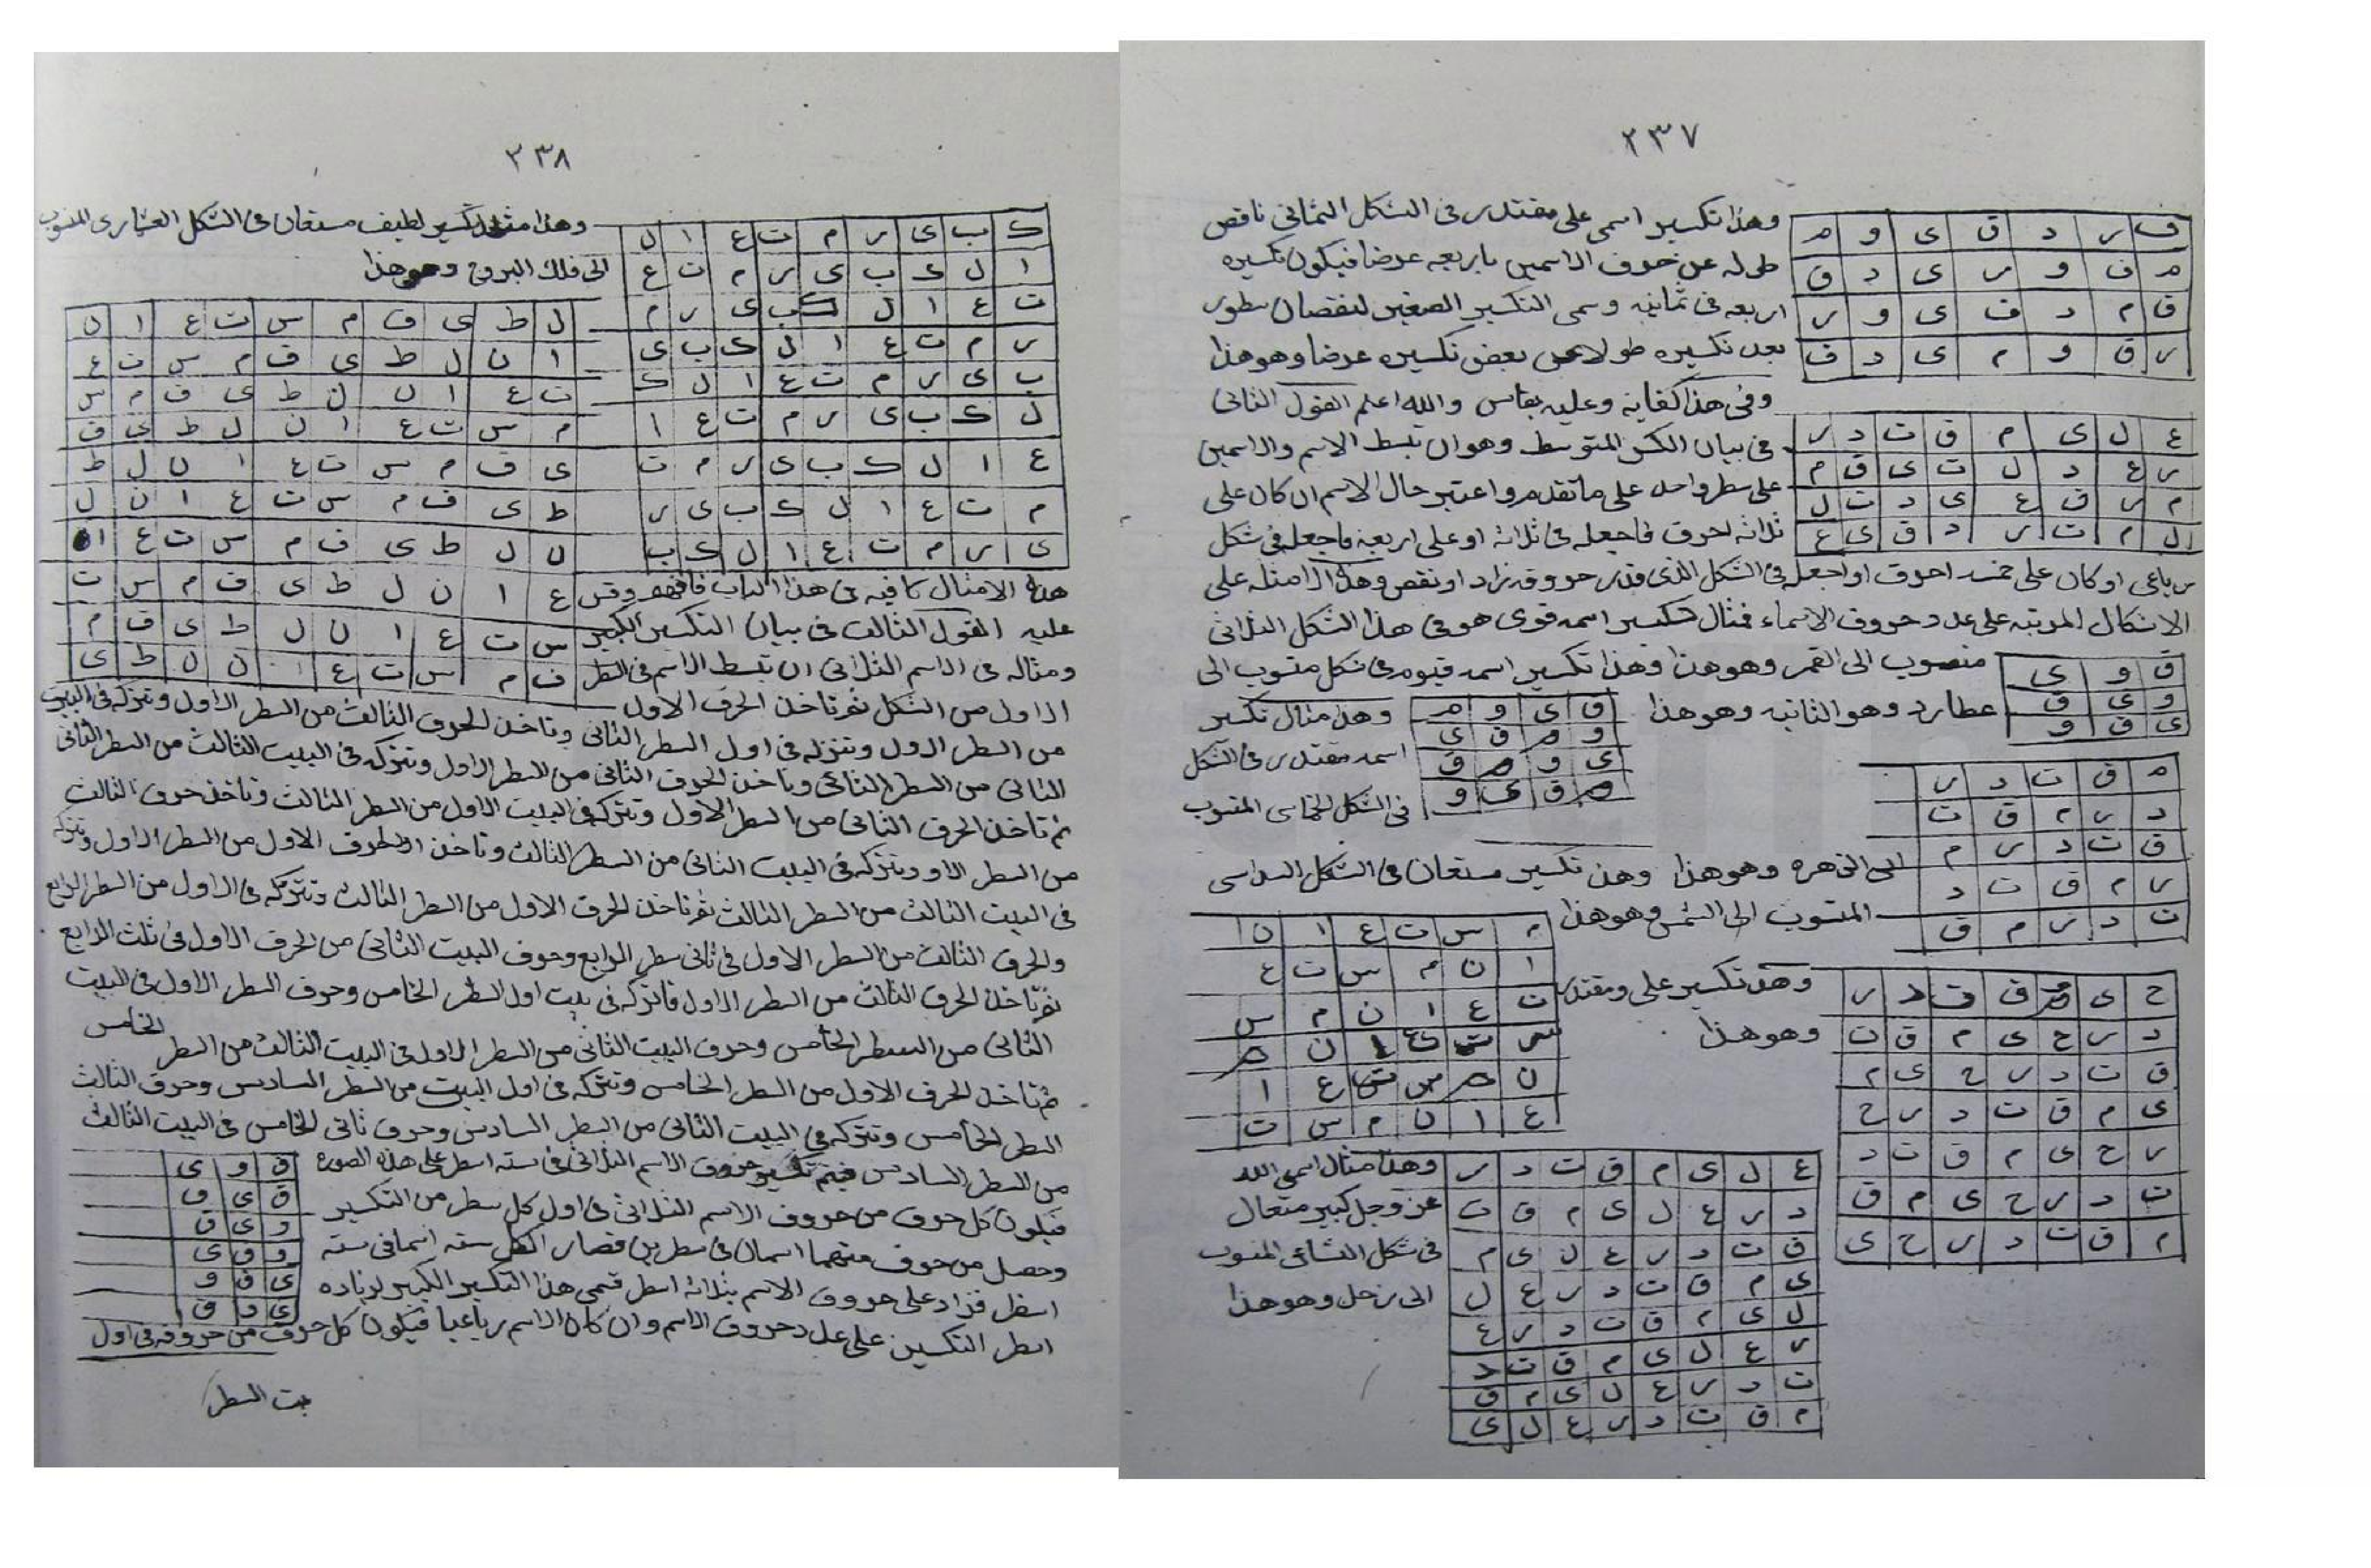 ٢٣٧
وهذا تكسير اسمى على مقتدر فى الشكل الثمانى ناقص
طوله عن حروف الاسمين باربعه عرضا فيكون تكسيره
اربعه فى ثمانيه وسمى التكسير الصغير لنقصان سطور
بعد تكسيره طولا عن بعض تكسيره عرضا وهو هذا
ف ر د ق ى و م
م ف و ر ى د ق
ق م د ف ى و ر
ر ق و م ى د ف
وفى هذا كفايه وعليه يقاس والله اعلم القول الثانى
فى بيان الكسر المتوسط وهو ان تبسط الاسم والاسمين
على سطر واحد على ما تقدم واعتبر حال الاسم ان كان على
ثلاثة احرف فاجعله فى ثلاثه او على اربعة فاجعله فى شكل
ع ل ى م ق ت د ر
ر ع د ل ت ى ق م
م ر ق ع ى د ت ل
ل م ت ر د ق ى ع
رباعى او كان على خمسه احرف او اجعله فى الشكل الذى قدر حروفه زاد او نقص وهذه الامثله على
الاشكال المرتبه على عدد حروف الاسماء فمثال تكسير اسمه قوى هو فى هذا الشكل الثلاثى
منصوب الى القمر وهو هذا وهذا تكسير اسمه قيوم فى شكل منسوب الى
ق و ى
و ى ق
ى ق و
عطارد وهو الثانيه وهو هذا
ق ى و م
و م ق ى
ى و م ق
م ق ى و
وهذا مثال تكسير
اسمه مقتدر فى الشكل
فى الشكل الخماسى المنسوب
م ق ت د ر
د ر م ق ت
ق ت د ر م
ر م ق ت د
ت د ر م ق
الى الزهره وهو هذا وهذا تكسير مستعان فى الشكل السداسى
المنسوب الى الشمس وهو هذا
م س ت ع ا ن
ا ن م س ت ع
ت ع ا ن م س
س ت ع ا ن م
ن م س ت ع ا
ع ا ن م س ت
وهذا تكسير على ومقتدر
وهو هذا
ح ى م ق ت د ر
د ر ح ى م ق ت
ق ت د ر ح ى م
ى م ق ت د ر ح
ر ح ى م ق ت د
ت د ر ح ى م ق
م ق ت د ر ح ى
وهذا مثال اسمى الله
عز وجل كبير متعال
فى شكل التساعى المنسوب
الى زحل وهو هذا
ع ل ى م ق ت د ر
د ر ع ل ى م ق ت
ق ت د ر ع ل ى م
ى م ق ت د ر ع ل
ل ى م ق ت د ر ع
ر ع ل ى م ق ت د
ت د ر ع ل ى م ق
م ق ت د ر ع ل ى
٢٣٨
وهذا مثله تكسير لطيف مستعان فى الشكل العشارى المنسوب
الى فلك البروج وهو هذا
ك ب ى ر م ت ع ا ل
ا ل ك ب ى ر م ت ع
ت ع ا ل ك ب ى ر م
ر م ت ع ا ل ك ب ى
ب ى ر م ت ع ا ل ك
ل ك ب ى ر م ت ع ا
ع ا ل ك ب ى ر م ت
م ت ع ا ل ك ب ى ر
ى ر م ت ع ا ل ك ب
ل ط ى ف م س ت ع ا ن
ا ن ل ط ى ف م س ت ع
ت ع ا ن ل ط ى ف م س
م س ت ع ا ن ل ط ى ف
ى ف م س ت ع ا ن ل ط
ط ى ف م س ت ع ا ن ل
ن ل ط ى ف م س ت ع ا
ع ا ن ل ط ى ف م س ت
س ت ع ا ن ل ط ى ف م
ف م س ت ع ا ن ل ط ى
هذه الامثال كافيه فى هذا الباب فافهم وقس
عليه القول الثالث فى بيان التكسير الكبير
ومثاله فى الاسم الثلاثى ان تبسط الاسم فى السطر
الاول من الشكل ثم تاخذ الحرف الاول
من السطر الاول وتنزله فى اول السطر الثانى وتاخذ الحرف الثالث من السطر الاول وتتركه فى البيت
الثانى من السطر الثانى وتاخذ الحرف الثانى من السطر الاول وتتركه فى البيت الثالث من السطر الثانى
ثم تاخذ الحرف الثانى من السطر الاول وتتركه فى البيت الاول من السطر الثالث وتاخذ حرف الثالث
من السطر الاول وتتركه فى البيت الثانى من السطر الثالث وتاخذ الحرف الاول من السطر الاول وتتركه
فى البيت الثالث من السطر الثالث ثم تاخذ الحرف الاول من السطر الثالث وتتركه فى الاول من السطر الرابع
والحرف الثالث من السطر الاول فى ثانى سطر الرابع وحرف البيت الثانى من الحرف الاول فى ثلث الرابع
ثم تاخذ الحرف الثالث من السطر الاول فاتركه فى بيت اول السطر الخامس وحرف السطر الاول فى البيت
الثانى من السطر الخامس وحرف البيت الثانى من السطر الاول فى البيت الثالث من السطر الخامس
ثم تاخذ الحرف الاول من السطر الخامس وتتركه فى اول البيت من السطر السادس وحرف الثالث
السطر الخامس وتتركه فى البيت الثانى من السطر السادس وحرف ثانى الخامس فى البيت الثالث
من السطر السادس فيتم تكسير حروف الاسم الثلاثى فى سته اسطر على هذه الصورة
فيكون كل حرف من حروف الاسم الثلاثى فى اول كل سطر من التكسير
وحصل من حرف منهما اسمان فى سطرين فصار الكل سته اسما فى سته
اسطر فزاد على حروف الاسم بثلاثه اسطر فسمى هذا التكسير الكبير لزياده
اسطر التكسير على عدد حروف الاسم وان كان الاسم رباعيا فيكون كل حرف من حروفه فى اول
ق و ى
ق ى و
و ى ق
و ق ى
ى ق و
ى و ق
بيت السطر